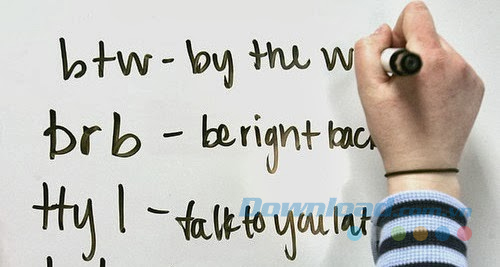 btw - by the w
brb - be right bac
ttyl - talk to you lat
Download